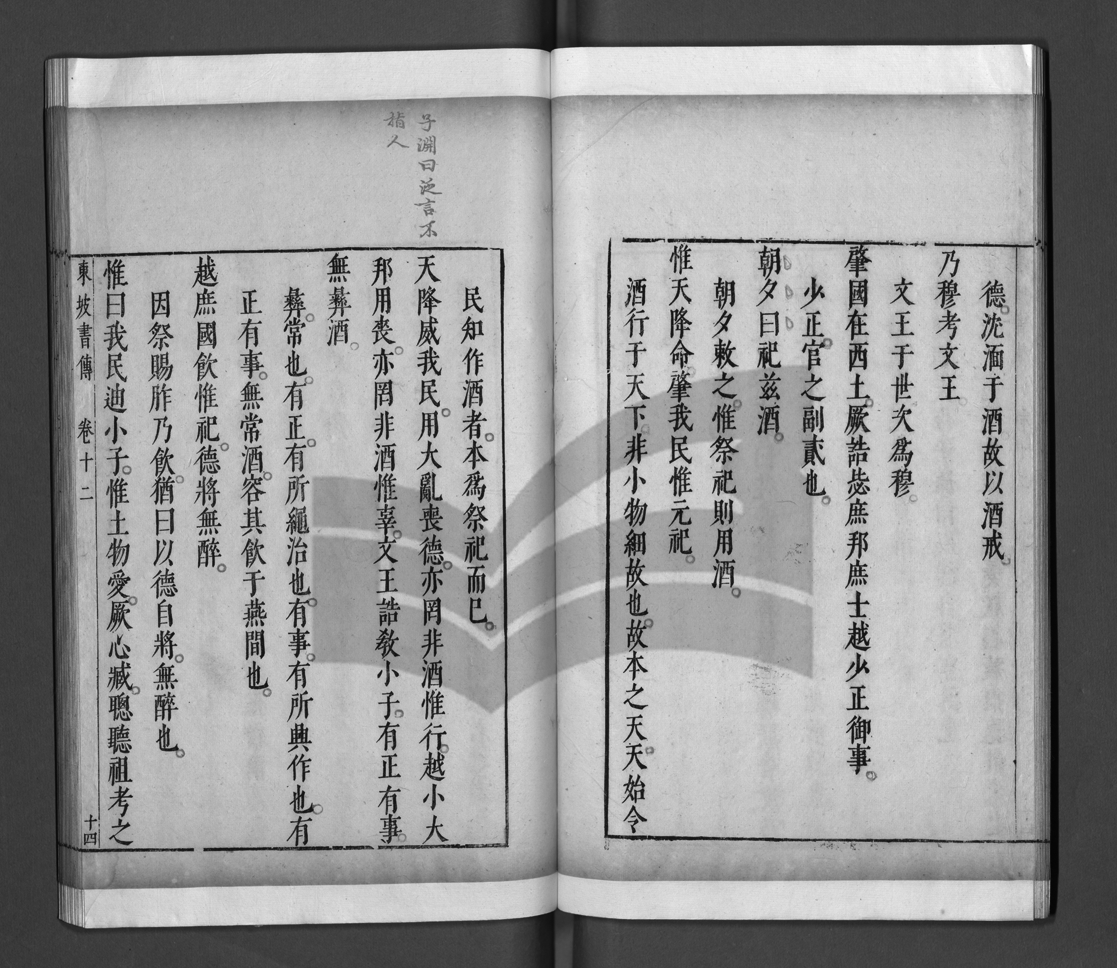 德。沈湎于酒故以酒戒。
乃穆考文王
文王于世次爲穆。
肇國在西土。厥誥毖庶邦庶士越少正御事。
少正。官之副貳也。
朝夕曰祀兹酒。
朝夕敕之。惟祭祀則用酒。
惟天降命。肇我民惟元祀。
酒行于天下。非小物細故也。故本之天。天始令
民知作酒者。本爲祭祀而已。
天降威我民。用大亂喪德。亦罔非酒惟行。越小大
邦用喪。亦罔非酒惟辜。文王誥敎小子。有正有事。
無彝酒。
彝。常也。有正。有所繩治也。有事。有所興作也。有
正有事。無常酒。容其飲于燕間也。
越庶國飲惟祀。德將無醉。
因祭賜胙乃飲。猶曰以德自將。無醉也。
惟曰我民迪小子。惟土物愛。厥心臧。聰聽祖考之
東坡書傳 卷十二 十四
子淵曰泛言不
指人